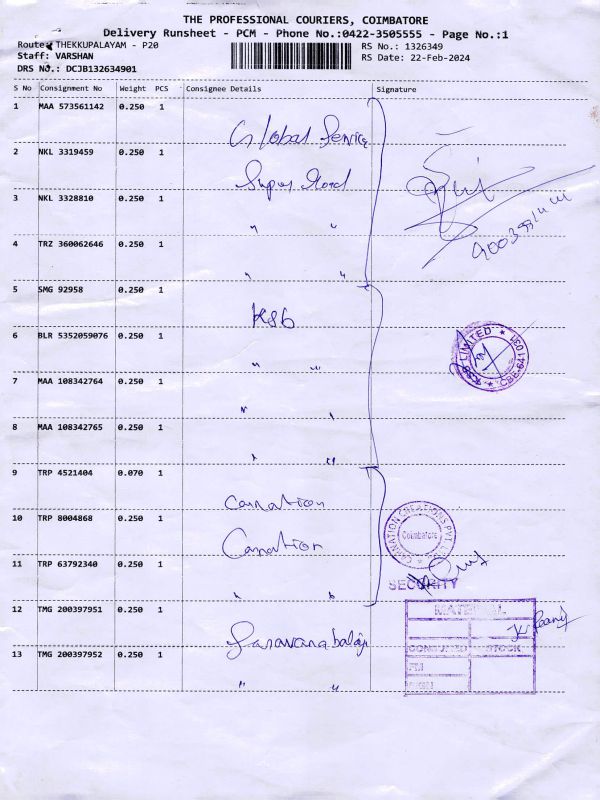 THE PROFESSIONAL COURIERS, COIMBATORE
Delivery Runsheet - PCM - Phone No.:0422-3505555 - Page No.:1
Route: THEKKUPALAYAM - P20
RS No.: 1326349
Staff: VARSHAN
RS Date: 22-Feb-2024
DRS No.: DCJB132634901
S No Consignment No Weight PCS Consignee Details Signature
1 MAA 573561142 0.250 1 Global Service
2 NKL 3319459 0.250 1
3 NKL 3328810 0.250 1 " "
4 TRZ 360062646 0.250 1 " "
5 SMG 92958 0.250 1 KSB
6 BLR 5352059076 0.250 1 " "
KSB LIMITED
7 MAA 108342764 0.250 1 " "
8 MAA 108342765 0.250 1 " "
9 TRP 4521404 0.070 1 Carnation
10 TRP 8004868 0.250 1 Carnation
CARNATION CREATIONS PVT. LTD.
Coimbatore
11 TRP 63792340 0.250 1 " "
SECURITY
12 TMG 200397951 0.250 1 Saravana balaji
MATERIAL
13 TMG 200397952 0.250 1 " "
STOCK